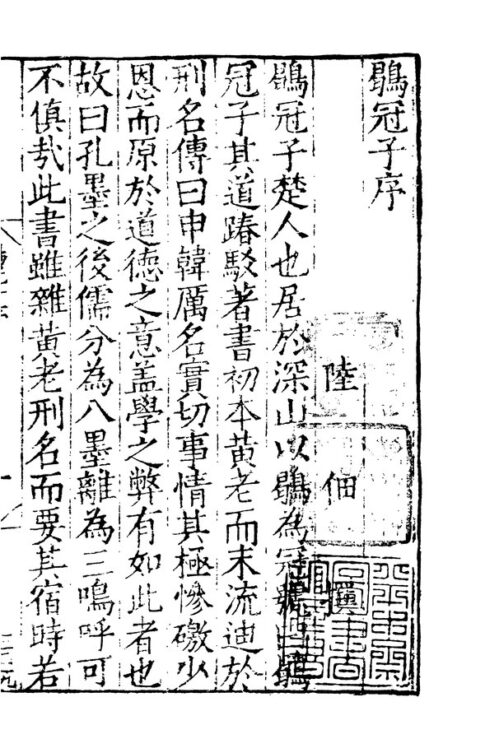 鶡冠子序
陸佃撰
鶡冠子楚人也居於深山以鶡為冠號曰鶡
冠子其道踳駁著書初本黃老而末流迪於
刑名傳曰申韓厲名實切事情其極慘礉少
恩而原於道德之意盖學之弊有如此者也
故曰孔墨之後儒分為八墨離為三嗚呼可
不慎㢤此書雖雜黃老刑名而要其宿時若